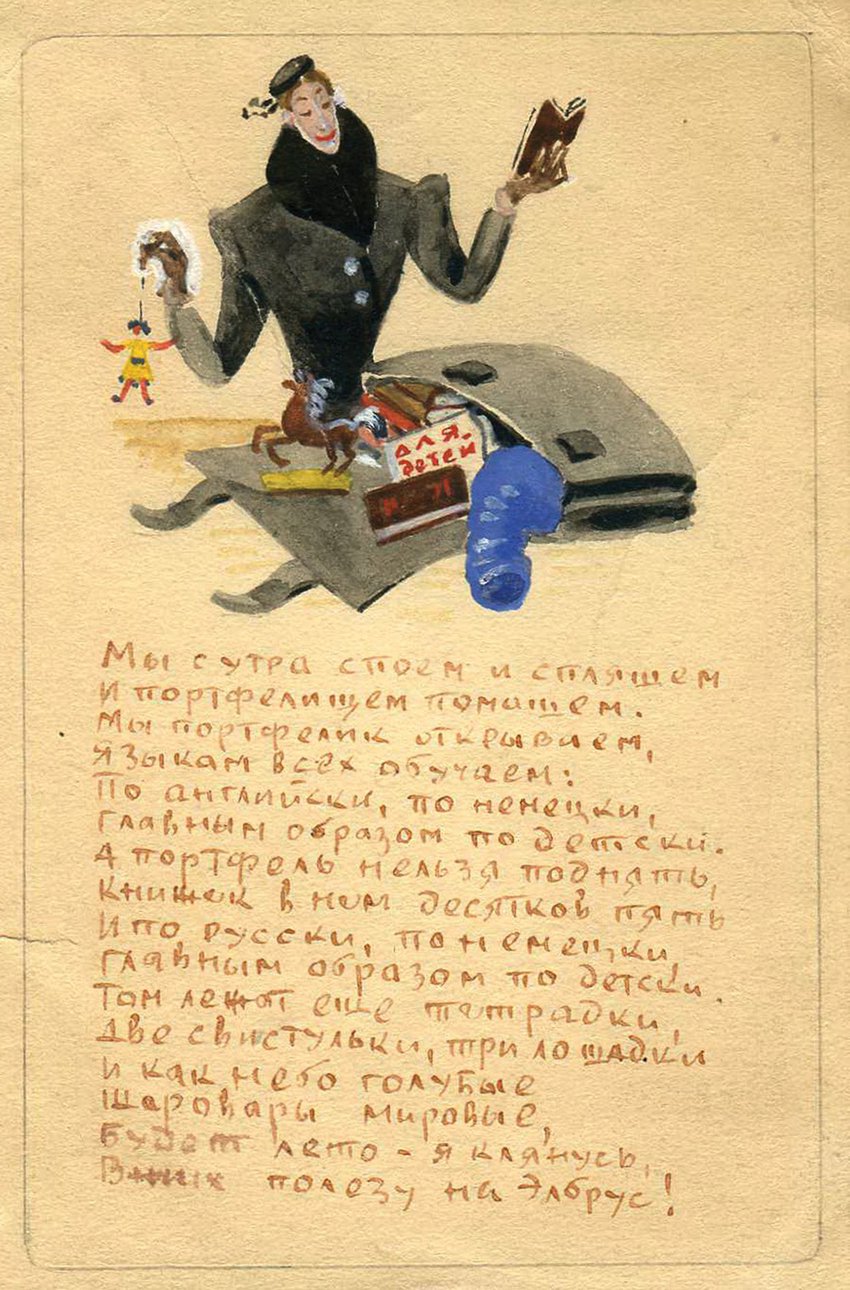 для
детей
Мы с утра споем и спляшем
И портфелищем помашем.
Мы портфелик открываем,
Языкам всех обучаем:
По английски, по немецки,
Главным образом по детски.
А портфель нельзя поднять,
Книжек в нем десятков пять
И по русски, по немецки,
Главным образом по детски.
Там лежат еще тетрадки,
Две свистульки, три лошадки
И как небо голубые
Шаровары мировые,
Будет лето - я клянусь,
В них полезу на Элбрус!